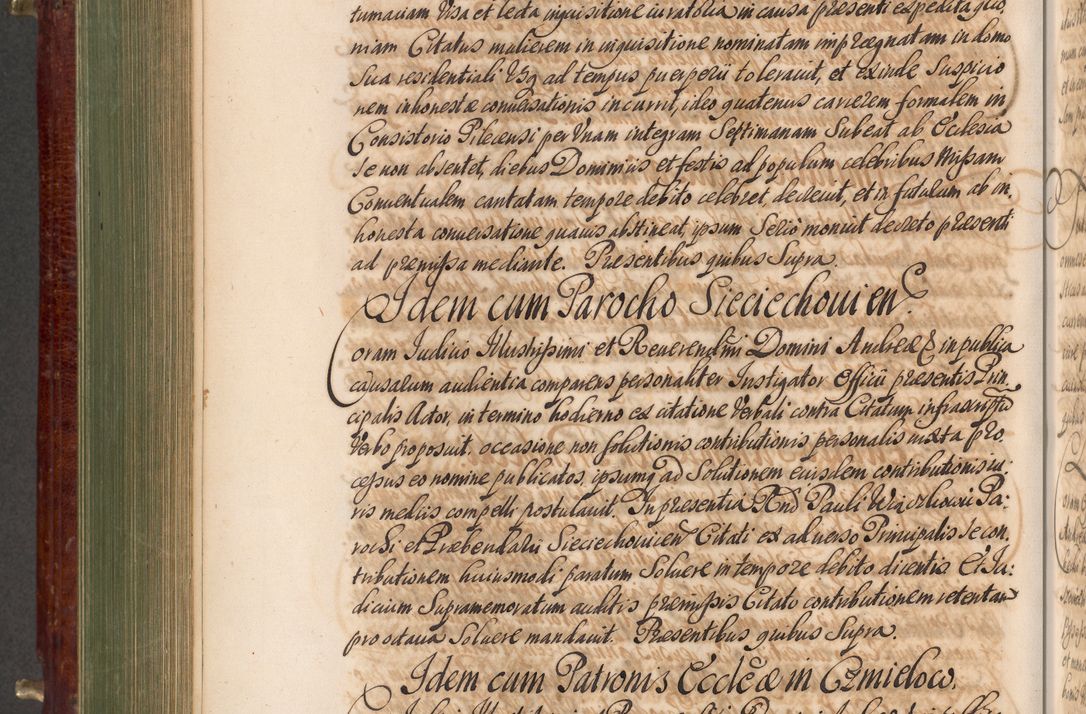 tumaciam Visa et lecta inquisitione iuratoria in causa præsenti expedita, quo,
niam Citatus mulierem in inquisitione nominatam imprægnatam in domo
sua residentiali Usq ad tempus puerperii toleravit, et exinde Suspicio
nem inhonestæ conversationis incurrit, ideo quatenus carcerem formalem in
Consistorio Pilecensi per Vnam integram Septimanam Subeat ab Ecclesia
se non absentet, diebus Dominicis et festis ad populum celebribus Missam
Conventualem cantatam tempore debito celebret, decrevit, et in futurum ab in,
honesta conversatione quavis abstineat, ipsum Serio monuit decreto præsenti
ad præmissa mediante. Præsentibus quibus Supra.
Idem cum Parocho Sieciechovien
Coram Iudicio Illustrissimi et Reverendmi Domini Andreæ in publica
causarum audientia comparens personaliter Instigator Officii præsentis Prin,
cipalis Actor, in termino hodierno ex citatione Verbali contra Citatum infrascriptu
Verbo proposuit. occasione non solutionis contributionis personalis iuxta pro
cessus eo nomine publicatos, ipsumq ad Solutionem eiusdem contributionis iu,
ris mediis compelli postulavit. In præsentia Rnd Pauli Pa:
rochi et Præbendarii Sieciechovien Citati ex adverso Principalis se con,
tributionem huiusmodi paratum Solvere in tempore debito dicentis Et Iu:
dicium Supramemoratum auditis præmissis Citato contributionem retentam
pro octava Solvere mandavit. Præsentibus quibus Supra.
Idem cum Patronis Ecclæ in Czmielow.